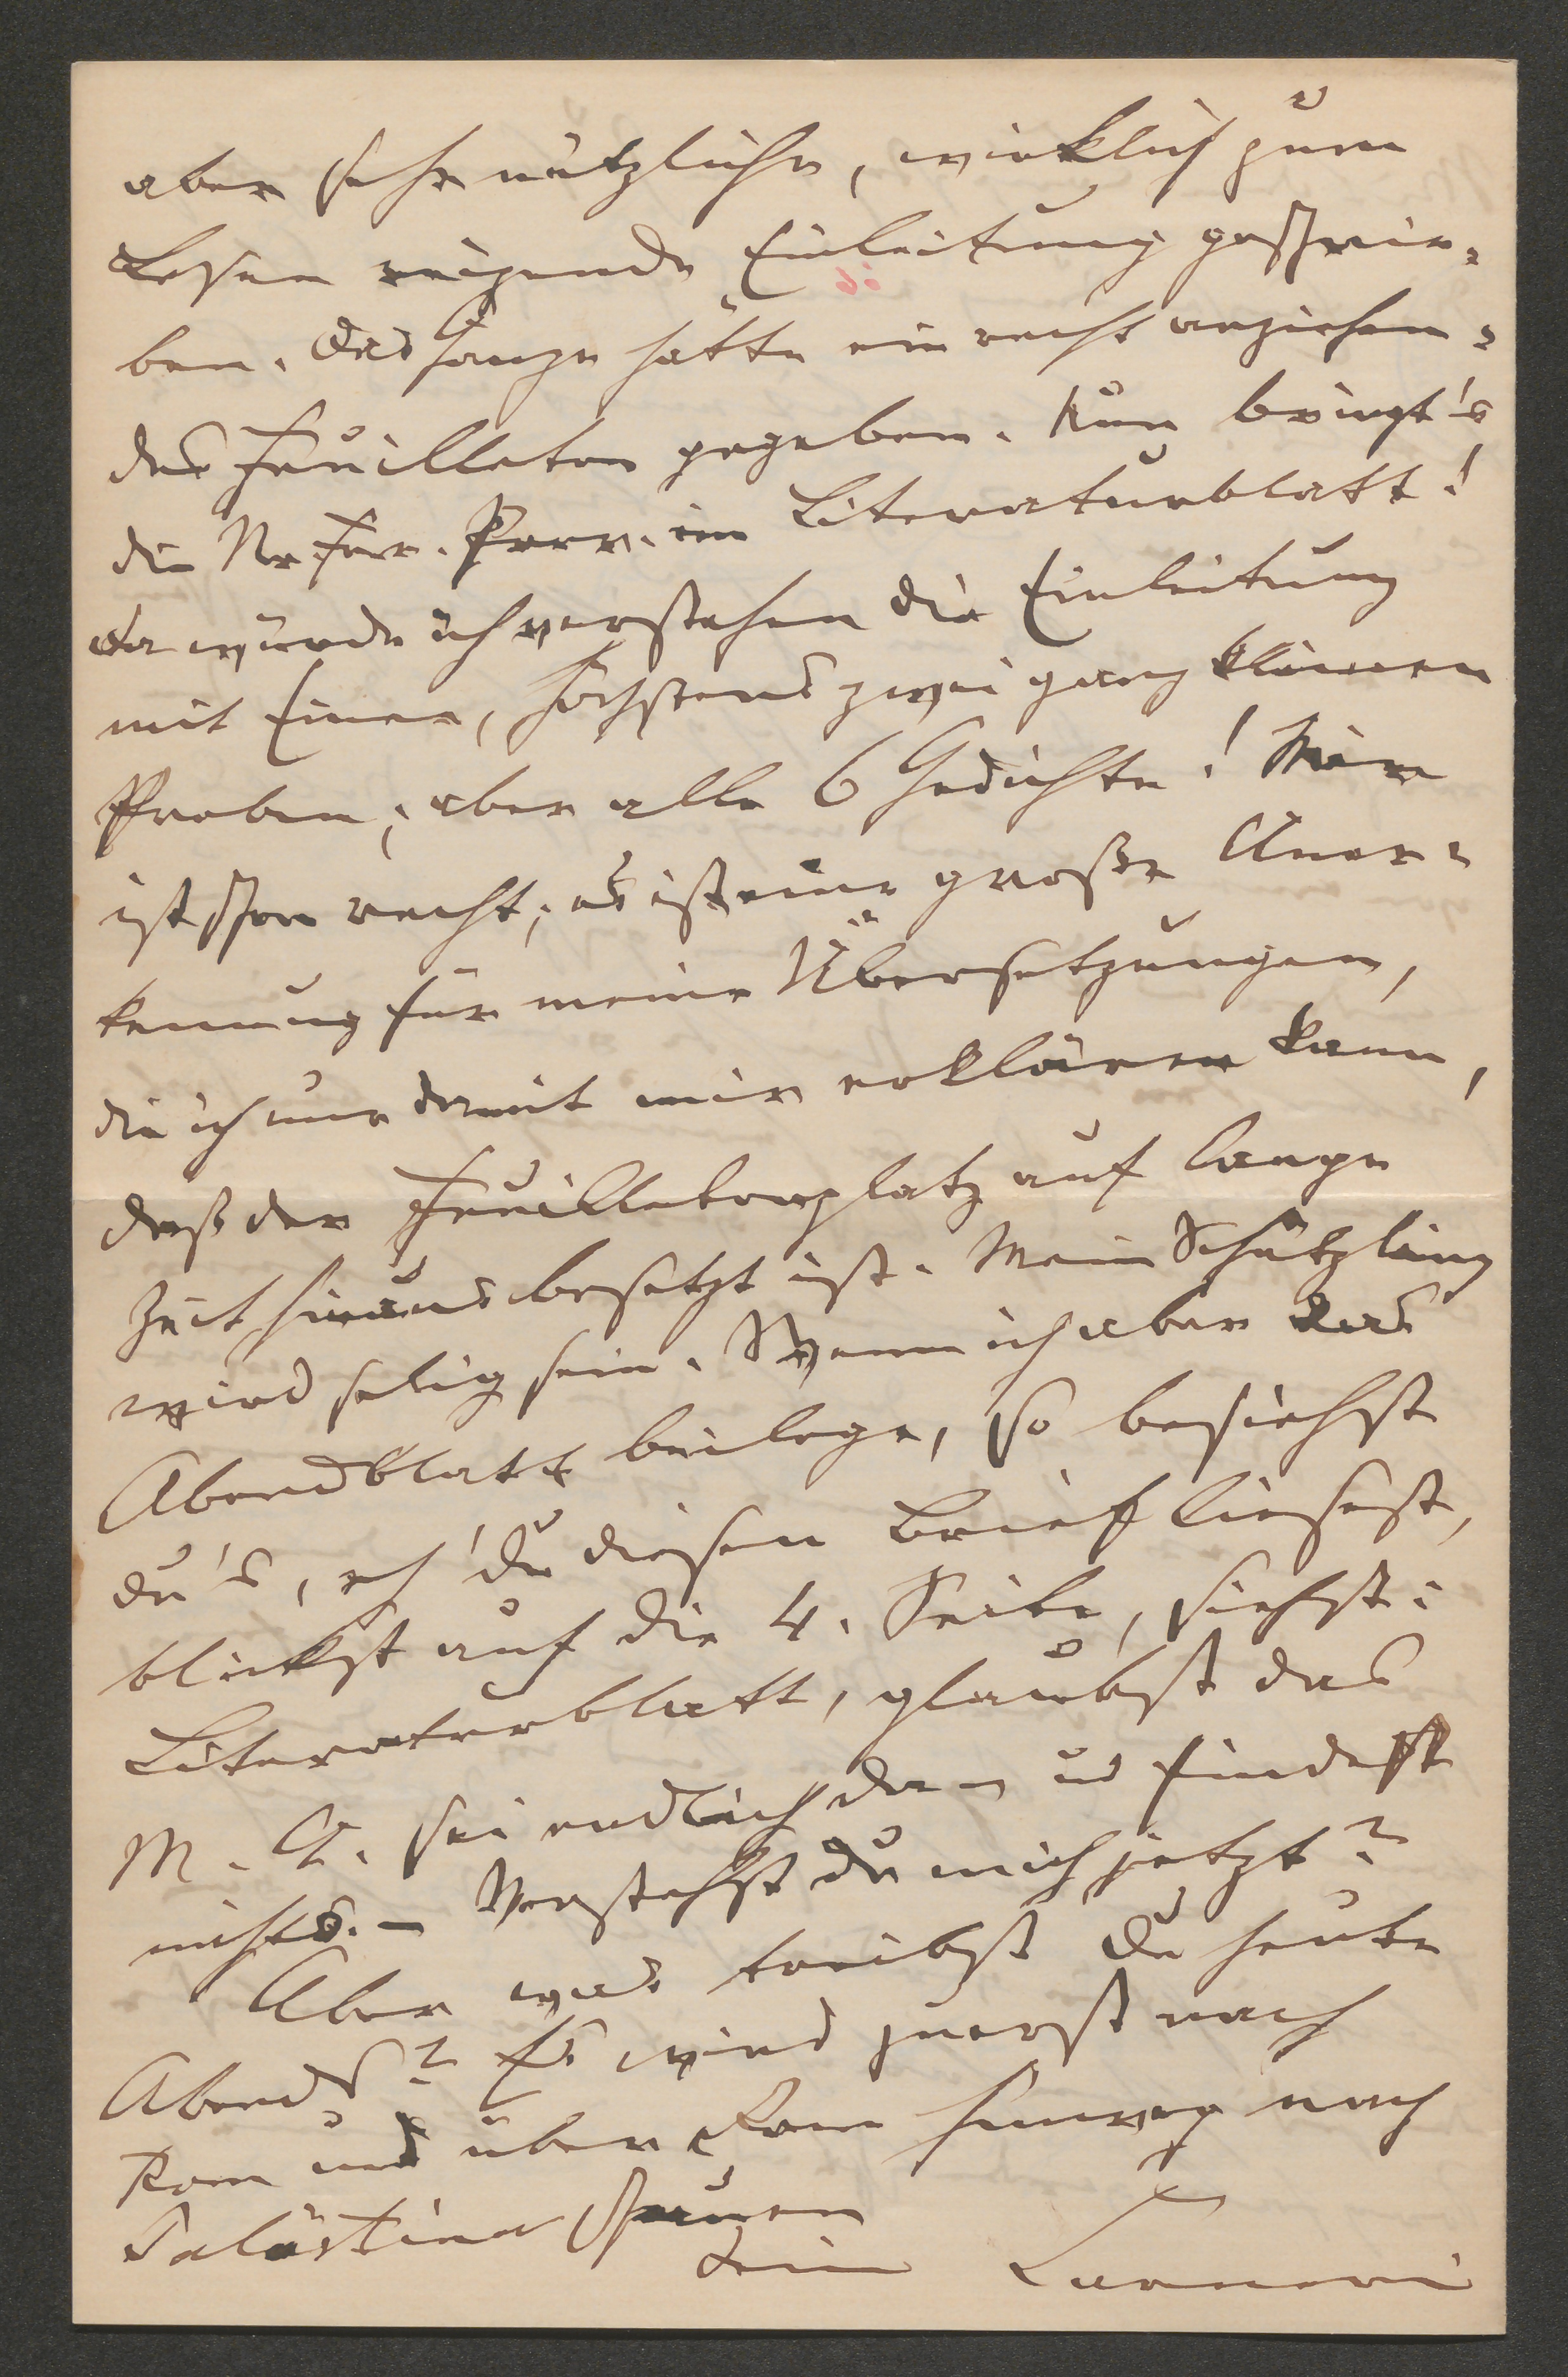 aber sehr nützliche, wirklich zum
Lesen reizende Einleitung geschrie-
ben. Das Ganze hätte ein recht anziehen-
des Feuilleton gegeben. Nun bringt's
die Ne. Fr. Pr. im Literaturblatt!
Da würde ich verstehen die Einleitung
mit Einer, höchstens zwei ganz kleinen
Proben; aber alle 6 Gedichte! Mir
ist schon recht; es ist eine große Aner-
kennung für meine Übersetzungen,
die ich nur damit mir erklären kann,
daß der Feuilletonplatz auf lange
Zeit hinaus besetzt ist. Mein Schützling
wird selig sein. Wenn ich aber das
Abendblatt beilege, so besiehst
du's, eh' du diesen Brief liesest,
blickst auf die 4. Seite, siehst:
Literaturblatt, glaubst das
M. A. sei endlich da – und findest
nichts. – Verstehst du mich jetzt?
Aber was treibst du heute
Abend? Es wird zuerst nach
Rom und über Rom hinweg nach
Palästina schauen
Dein Carneri